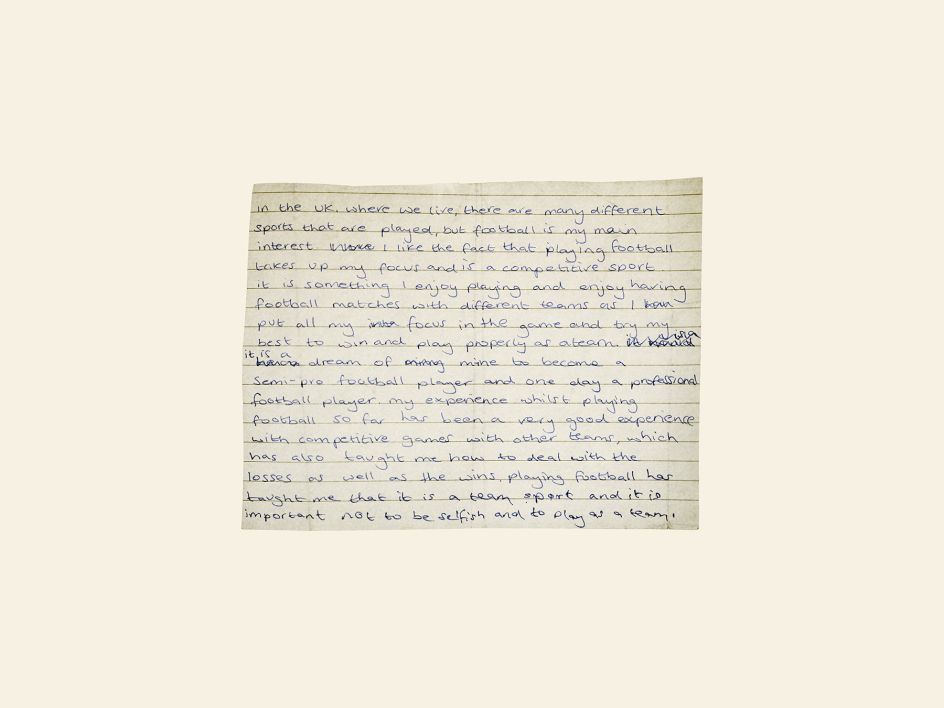 in the UK. where we live, there are many different
sports that are played, but football is my main
interest. I like the fact that playing football
takes up my focus and is a competitive sport.
it is something I enjoy playing and enjoy having
football matches with different teams as I
put all my focus in the game and try my
best to win and play properly as a team.
it is a
dream of mine to become a
semi-pro football player and one day a professional
football player. my experience whilst playing
football so far has been a very good experience
with competitive games with other teams, which
has also taught me how to deal with the
losses as well as the wins. playing football has
taught me that it is a team sport and it is
important not to be selfish and to play as a team.